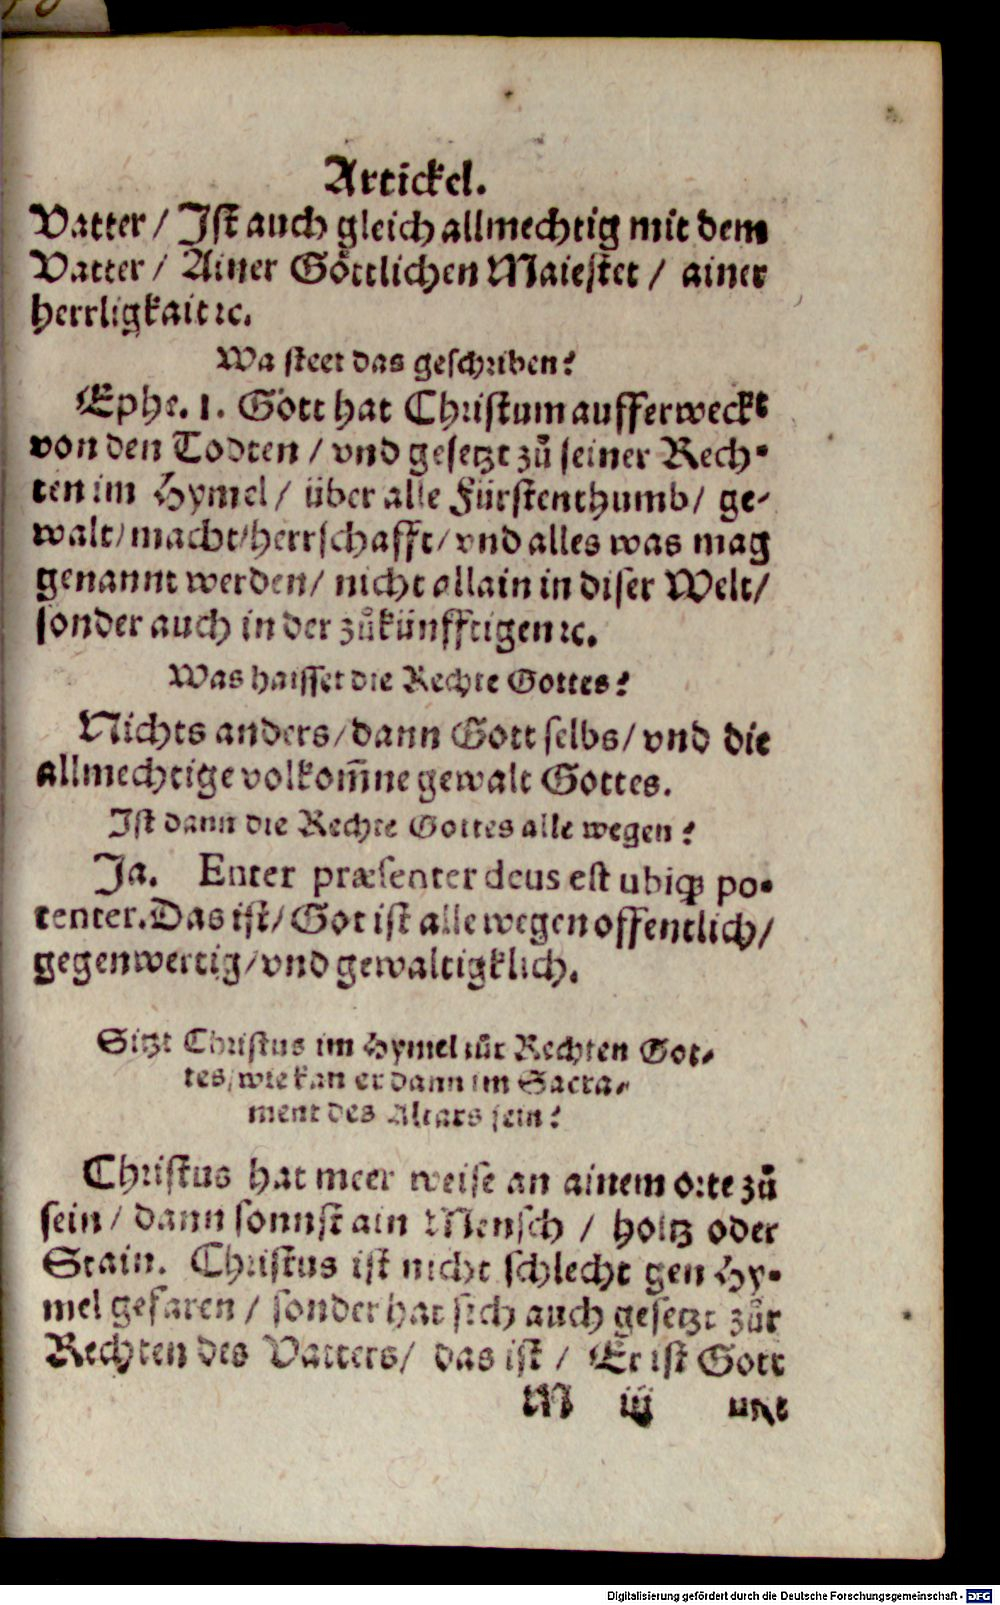 Artickel.
Vatter / Jst auch gleich allmechtig mit dem
Vatter / Ainer Göttlichen Maiestet / ainer
herrligkait ꝛc.
Wa steet das geschriben?
Ephe. 1. Gott hat Christum aufferweckt
von den Todten / vnd gesetzt zů seiner Rech-
ten im Hymel / über alle Fürstenthumb / ge-
walt / macht / herrschafft / vnd alles was mag
genannt werden / nicht allain in diser Welt /
sonder auch in der zůkünfftigen ꝛc.
Was haisset die Rechte Gottes?
Nichts anders / dann Gott selbs / vnd die
allmechtige volkom̃ne gewalt Gottes.
Jst dann die Rechte Gottes alle wegen?
Ja. Enter præsenter deus est ubiqꝫ po-
tenter. Das ist / Got ist alle wegen offentlich /
gegenwertig / vnd gewaltigklich.
Sitzt Christus im Hymel zůr Rechten Got-
tes, wie kan er dann im Sacra-
ment des Altars sein?
Christus hat meer weise an ainem orte zů
sein / dann sonnst ain Mensch / holtz oder
Stain. Christus ist nicht schlecht gen Hy-
mel gefaren / sonder hat sich auch gesetzt zůr
Rechten des Vatters / das ist / Er ist Gott
M iij
Digitalisierung gefördert durch die Deutsche Forschungsgemeinschaft - DFG